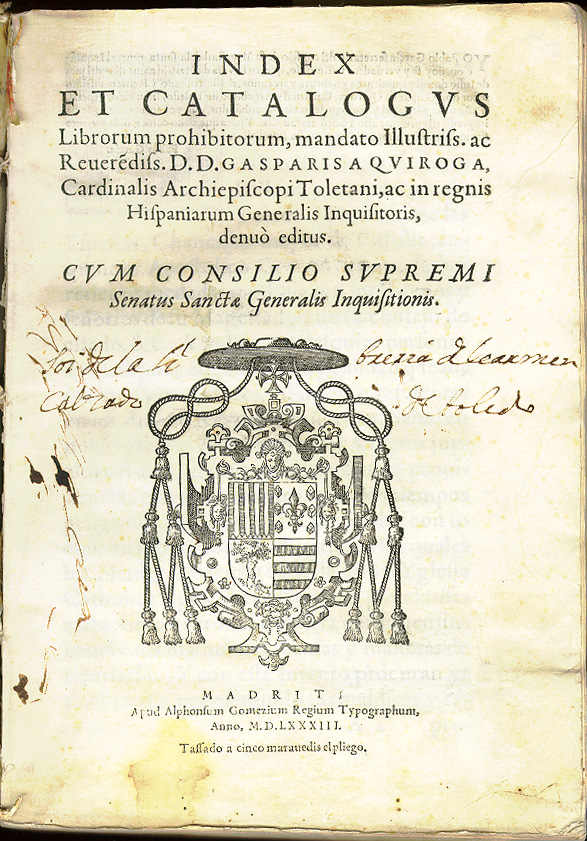 INDEX
ET CATALOGVS
Librorum prohibitorum, mandato Illustriss. ac
Reuerẽdiss. D.D. GASPARIS A QVIROGA,
Cardinalis Archiepiscopi Toletani, ac in regnis
Hispaniarum Generalis Inquisitoris,
denuò editus.
CVM CONSILIO SVPREMI
Senatus Sanctæ Generalis Inquisitionis.
soi de la li breria del carmen
Calzado de toledo
MADRITI
Apud Alphonsum Gomezium Regium Typographum,
Anno, M.D.LXXXIII.
Tassado a cinco marauedis el pliego.